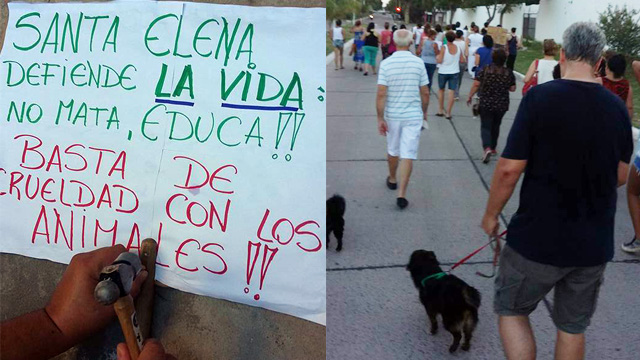 SANTA ELENA
DEFIENDE LA VIDA:
NO MATA, EDUCA!!
BASTA DE
CRUELDAD CON LOS
ANIMALES!!